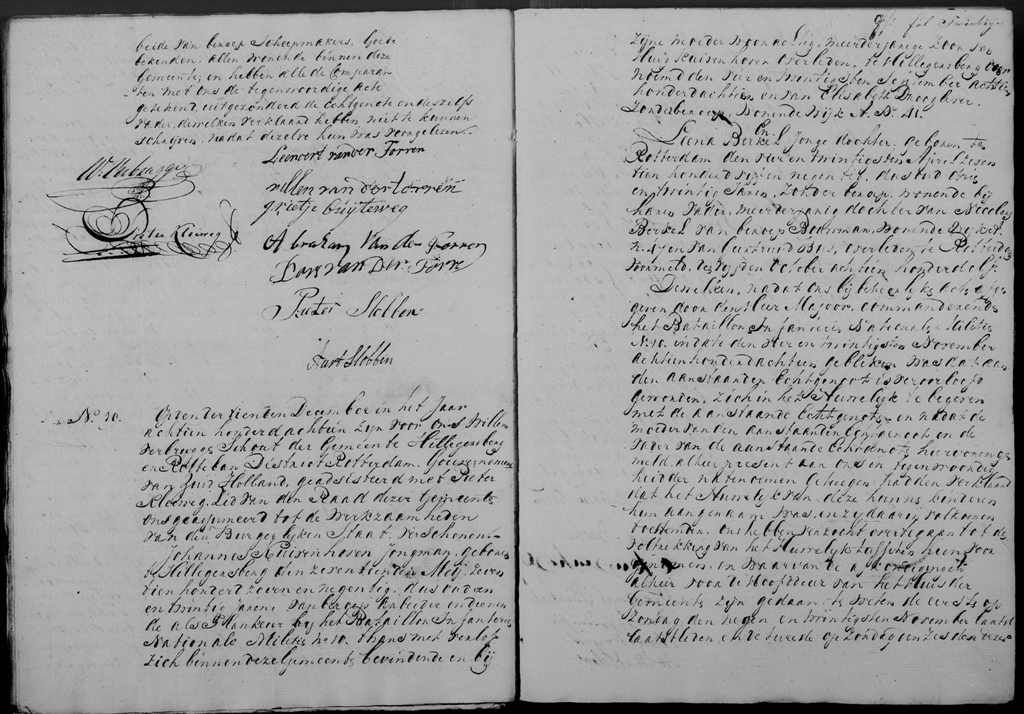 beide van beroep Scheepmakers. Goede
bekenden. Allen wonende binnen deze
Gemeente, en hebben alle de Comparan
ten met ons de tegenswoordige acte
getekend uitgezonderd de Echtgenote en deszelfs
vader, dewelken verklaard hebben niet te kunnen
schrijven. nadat dezelve hun was voorgelezen.
Leendert van der Torren
willem van der torren
grietje buijteweg
Pieter Kleiweg
Abraham Van der Torren
Bart van Der Torre
Pieter Slobben
Bart Slobben
No. 20. Op den tienden December in het Jaar
achtien honderd achtien zyn voor ons Wille
Verbrugge Schout der Gemeente Hillegersberg
en Rotteban District Rotterdam. Gouvernement
van Zuid Holland, geadsisteerd met Pieter
Kleiweg, Lid van den Raad dezer Gemeente
ons geadjungeerd tot de werkzaamheden
van den Burgerlyken Staat, verschenen
Johannes Kuisenhoven Jongman, geboren
te Hillegersberg den zeventienden Meij zeven
tien honderd zeven en negentig, dus oud een
en twintig jaren van beroep arbeider en dienen
de als Flankeur by het Bataillon Infanterie
Nationale Militie No 10. thans met verlof
zich binnen deze Gemeente bevindende en bij
zijne moeder woonachtig, meerderjarige Zoon van
Kuisenhoven overleden te Hillegersberg voor
noemd den vier en twintigsten September achtien
honderd achtien en van Elisabeth Droogheer
zonder beroep, wonende Wijk A. No. 41.
En
Lena Berkel Jonge dochter, geboren te
Rotterdam den vier en twintigsten April zeven
tien honderd vijf en negentig, dus oud drie
en twintig Jaren, zonder beroep, wonende bij
haren vader, meerderjarig dochter van Nicolaas
Berkel van beroep Bouwman, wonende Wijk
en van Geertruid Bos, overleden te Rotterdam
voormeld, den October achtien honderd elf
Dewelken, nadat ons bij behoorlyke acte afge
geven door den Heer Majoor, Commanderende
het Bataillon Infanterie Nationale Militie
No. 10. in date den vier en twintigsten November
achtienhonderd achtien gebleken was dat aan
den aanstaanden Echtgenoot is veroorloofd
geworden, zich in het Huwelyk te begeven
met de aanstaande Echtgenote, en nadat de
moeder van den aanstaanden Echtgenoot, en de
vader van de aanstaande Echtgenote hiervoren ge
meld, alhier present aan ons in tegenwoordig
heid der na te noemen Getuigen hadden verklaard
dat het Huwelyk van deze hunne kinderen
hun aangenaam was en zy daarin volkomen
toestemden. Ons hebben verzocht over te gaan tot de
voltrekking van het Huwelyk tusschen hen voor
genomen, en waarvan de afkondigingen
alhier voor de Hoofddeur van het Huis der
Gemeente zijn gedaan, te weten de eerste op
Zondag den negen en twintigsten November laatst
laatstleden en de tweede op Zondag den zesden dezer